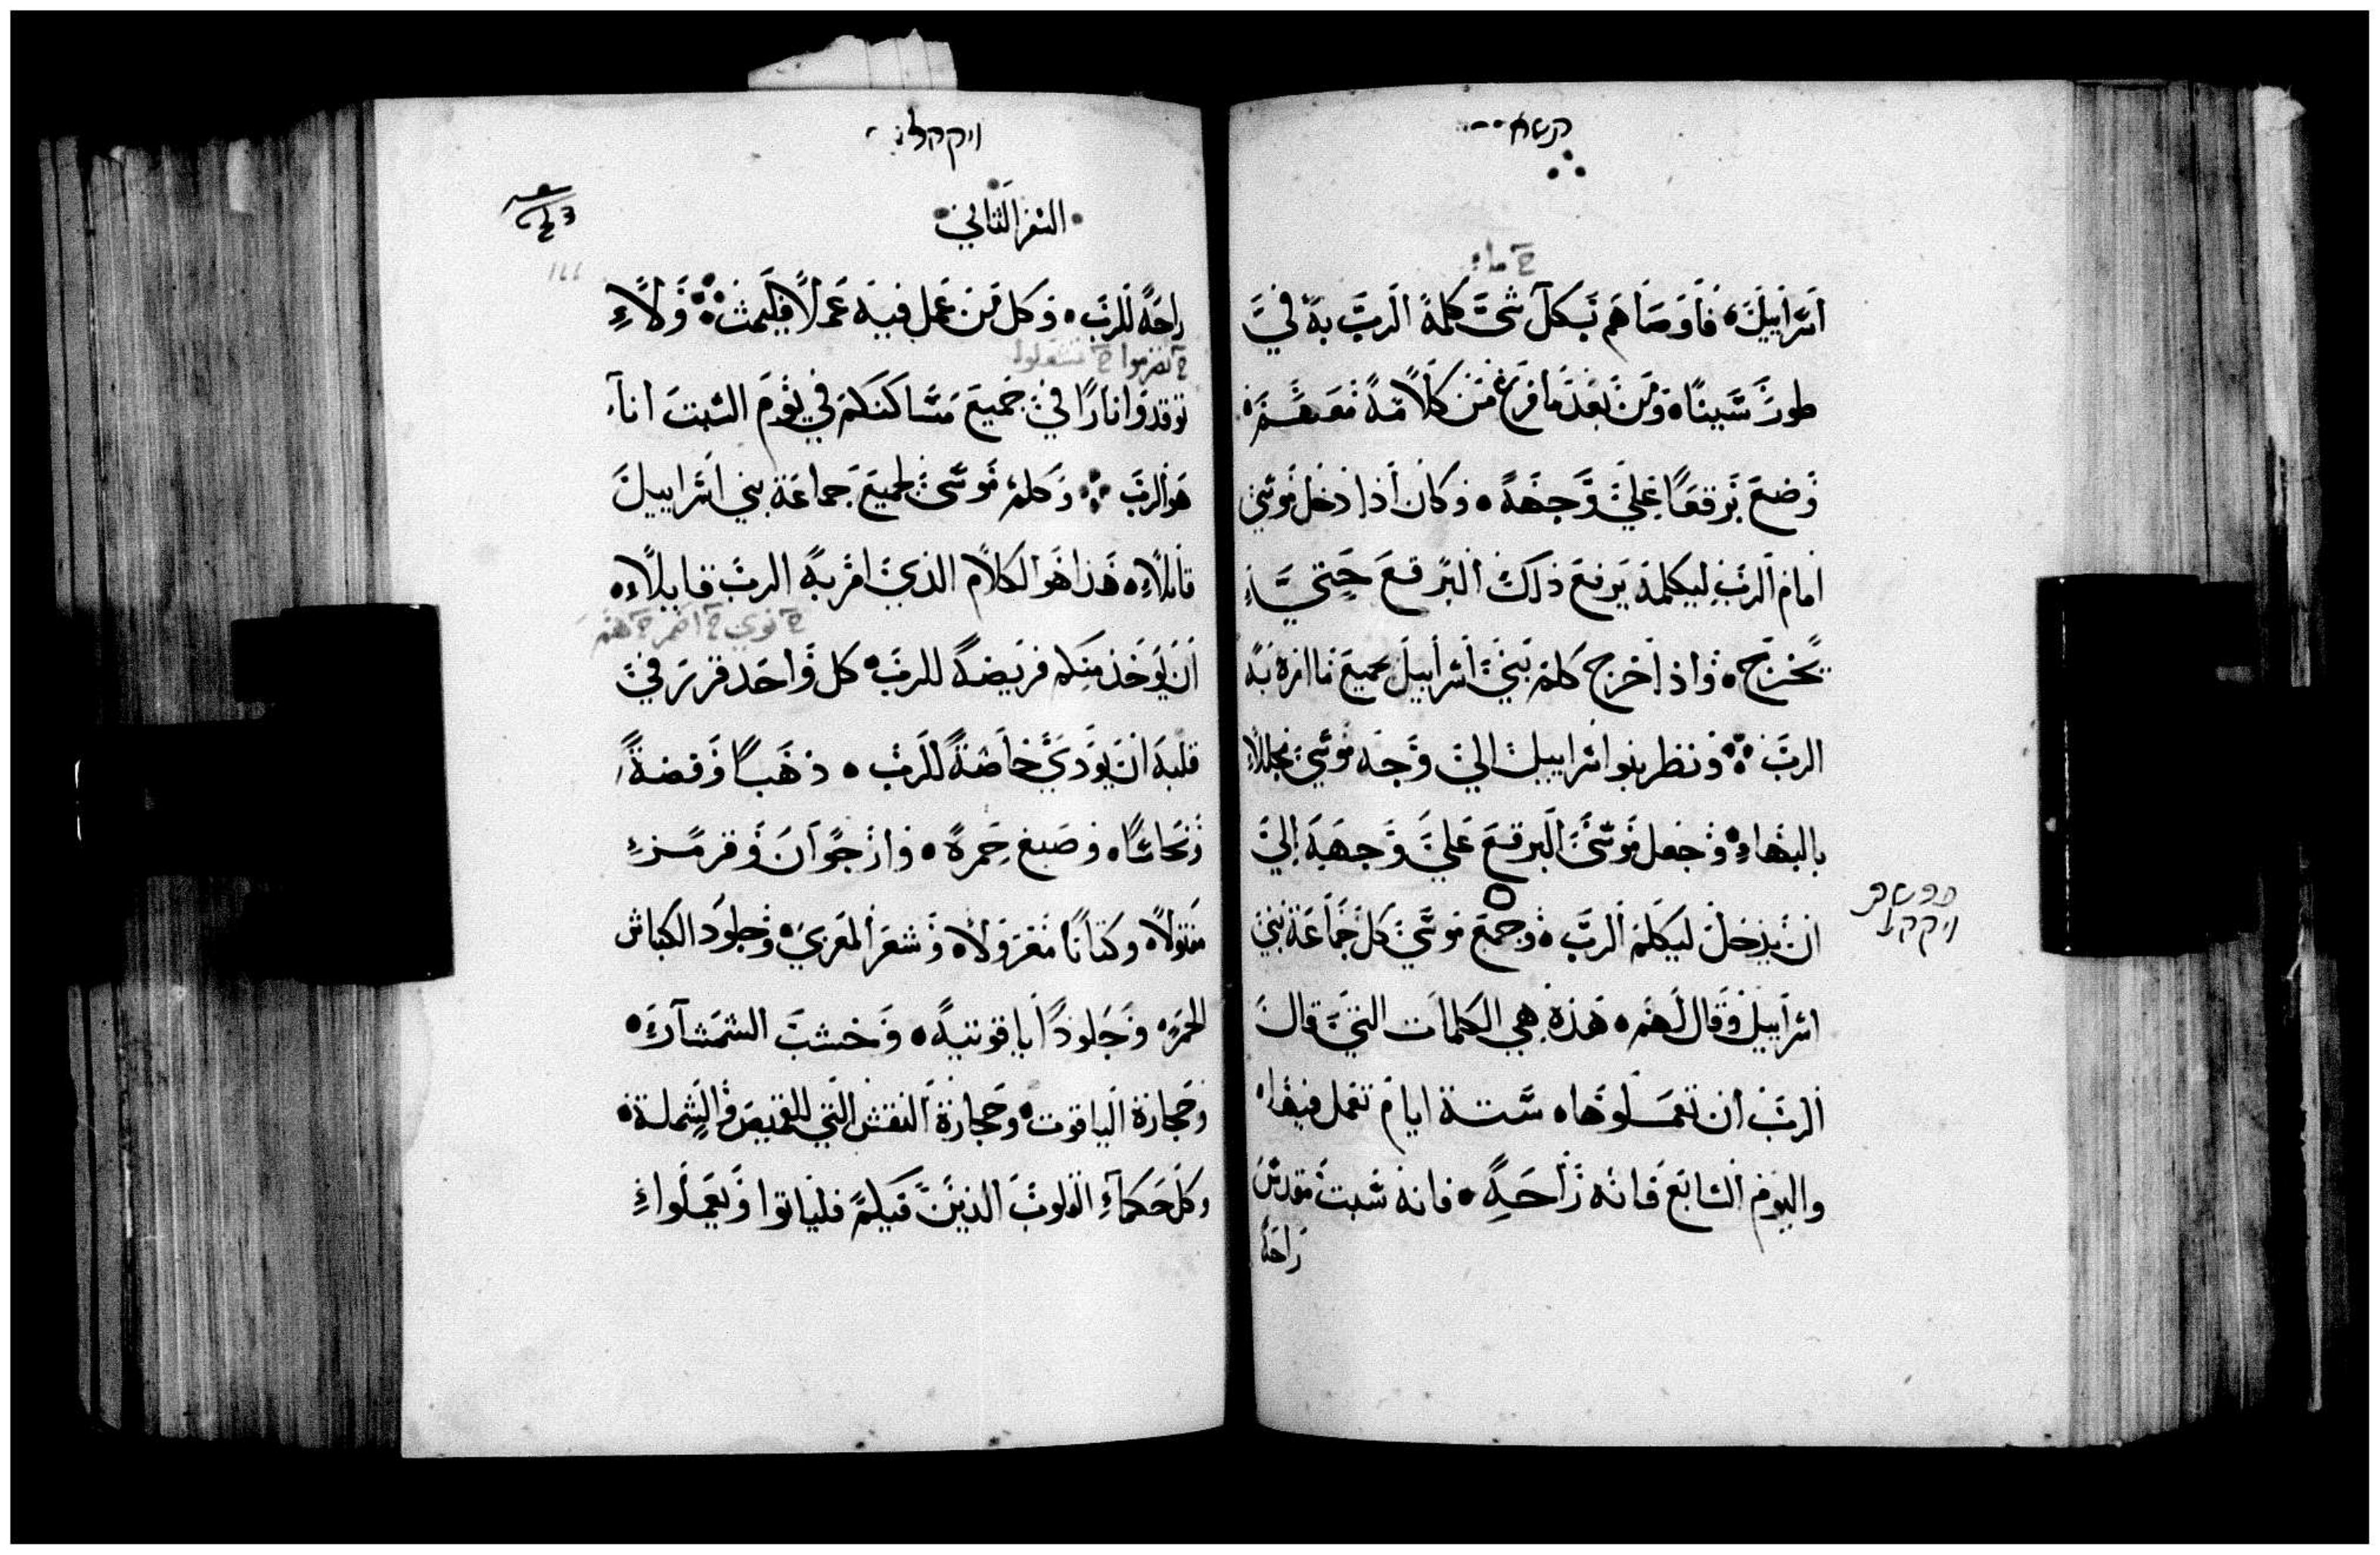 תשא
ח ما
اسراييل فاوصاهم بكل شى كلمه الرب به في
طور سيناه ومن بعد ما فرغ من كلامه معهم
وضع برقعًا على وجهه وكان اذا دخل موسي
امام الرب ليكلمه يرفع ذلك البرقع حتى
يخرج واذا خرج كلم بني اسراييل بجميع ما امره به
الرب ونظر بنوا اسراييل الي وجه موسي مجللاً
بالبهاء وجعل موسى البرقع علي وجهه الي
ان يدخل ليكلم الرب وجمع موسي كل جماعة بني
פרשת
ויקהל
اسراييل وقال لهم هذه هي الكلمات التي قال
الرب ان تعملوها ستة ايام تعمل فيها
واليوم السابع فانه راحة فانه سبت مقدس
راحة
ויקהל
السفر الثاني
راحة للرب وكل من عمل فيه عملاً فليمت ولا
ح تضرموا ح تشعلوا
توقدوا نارًا في جميع مساكنكم في يوم السبت انا
هو الرب وكلم موسى لجميع جماعة بني اسراييل
قايلاً هذا هو الكلام الذي امر به الرب قايلاً
ح نوي ح اضمر ح
ان يوخذ منكم فريضة للرب كل واحد قرر في
قلبه ان يودي خاصة للرب ذهبًا وفضةً
ونحاسًا وصبغ حمرة وارجوان وقرمز
مفتولاً وكتانًا مغزولاً وشعر المعزي وجلود الكباش
الحمر وجلودًا ياقوتيه وخشب الشمشار
وحجارة الياقوت وحجارة النقش التي للقميص والشملة
وكل حكماء القلوب الذين فيكم فلياتوا ويعملوا